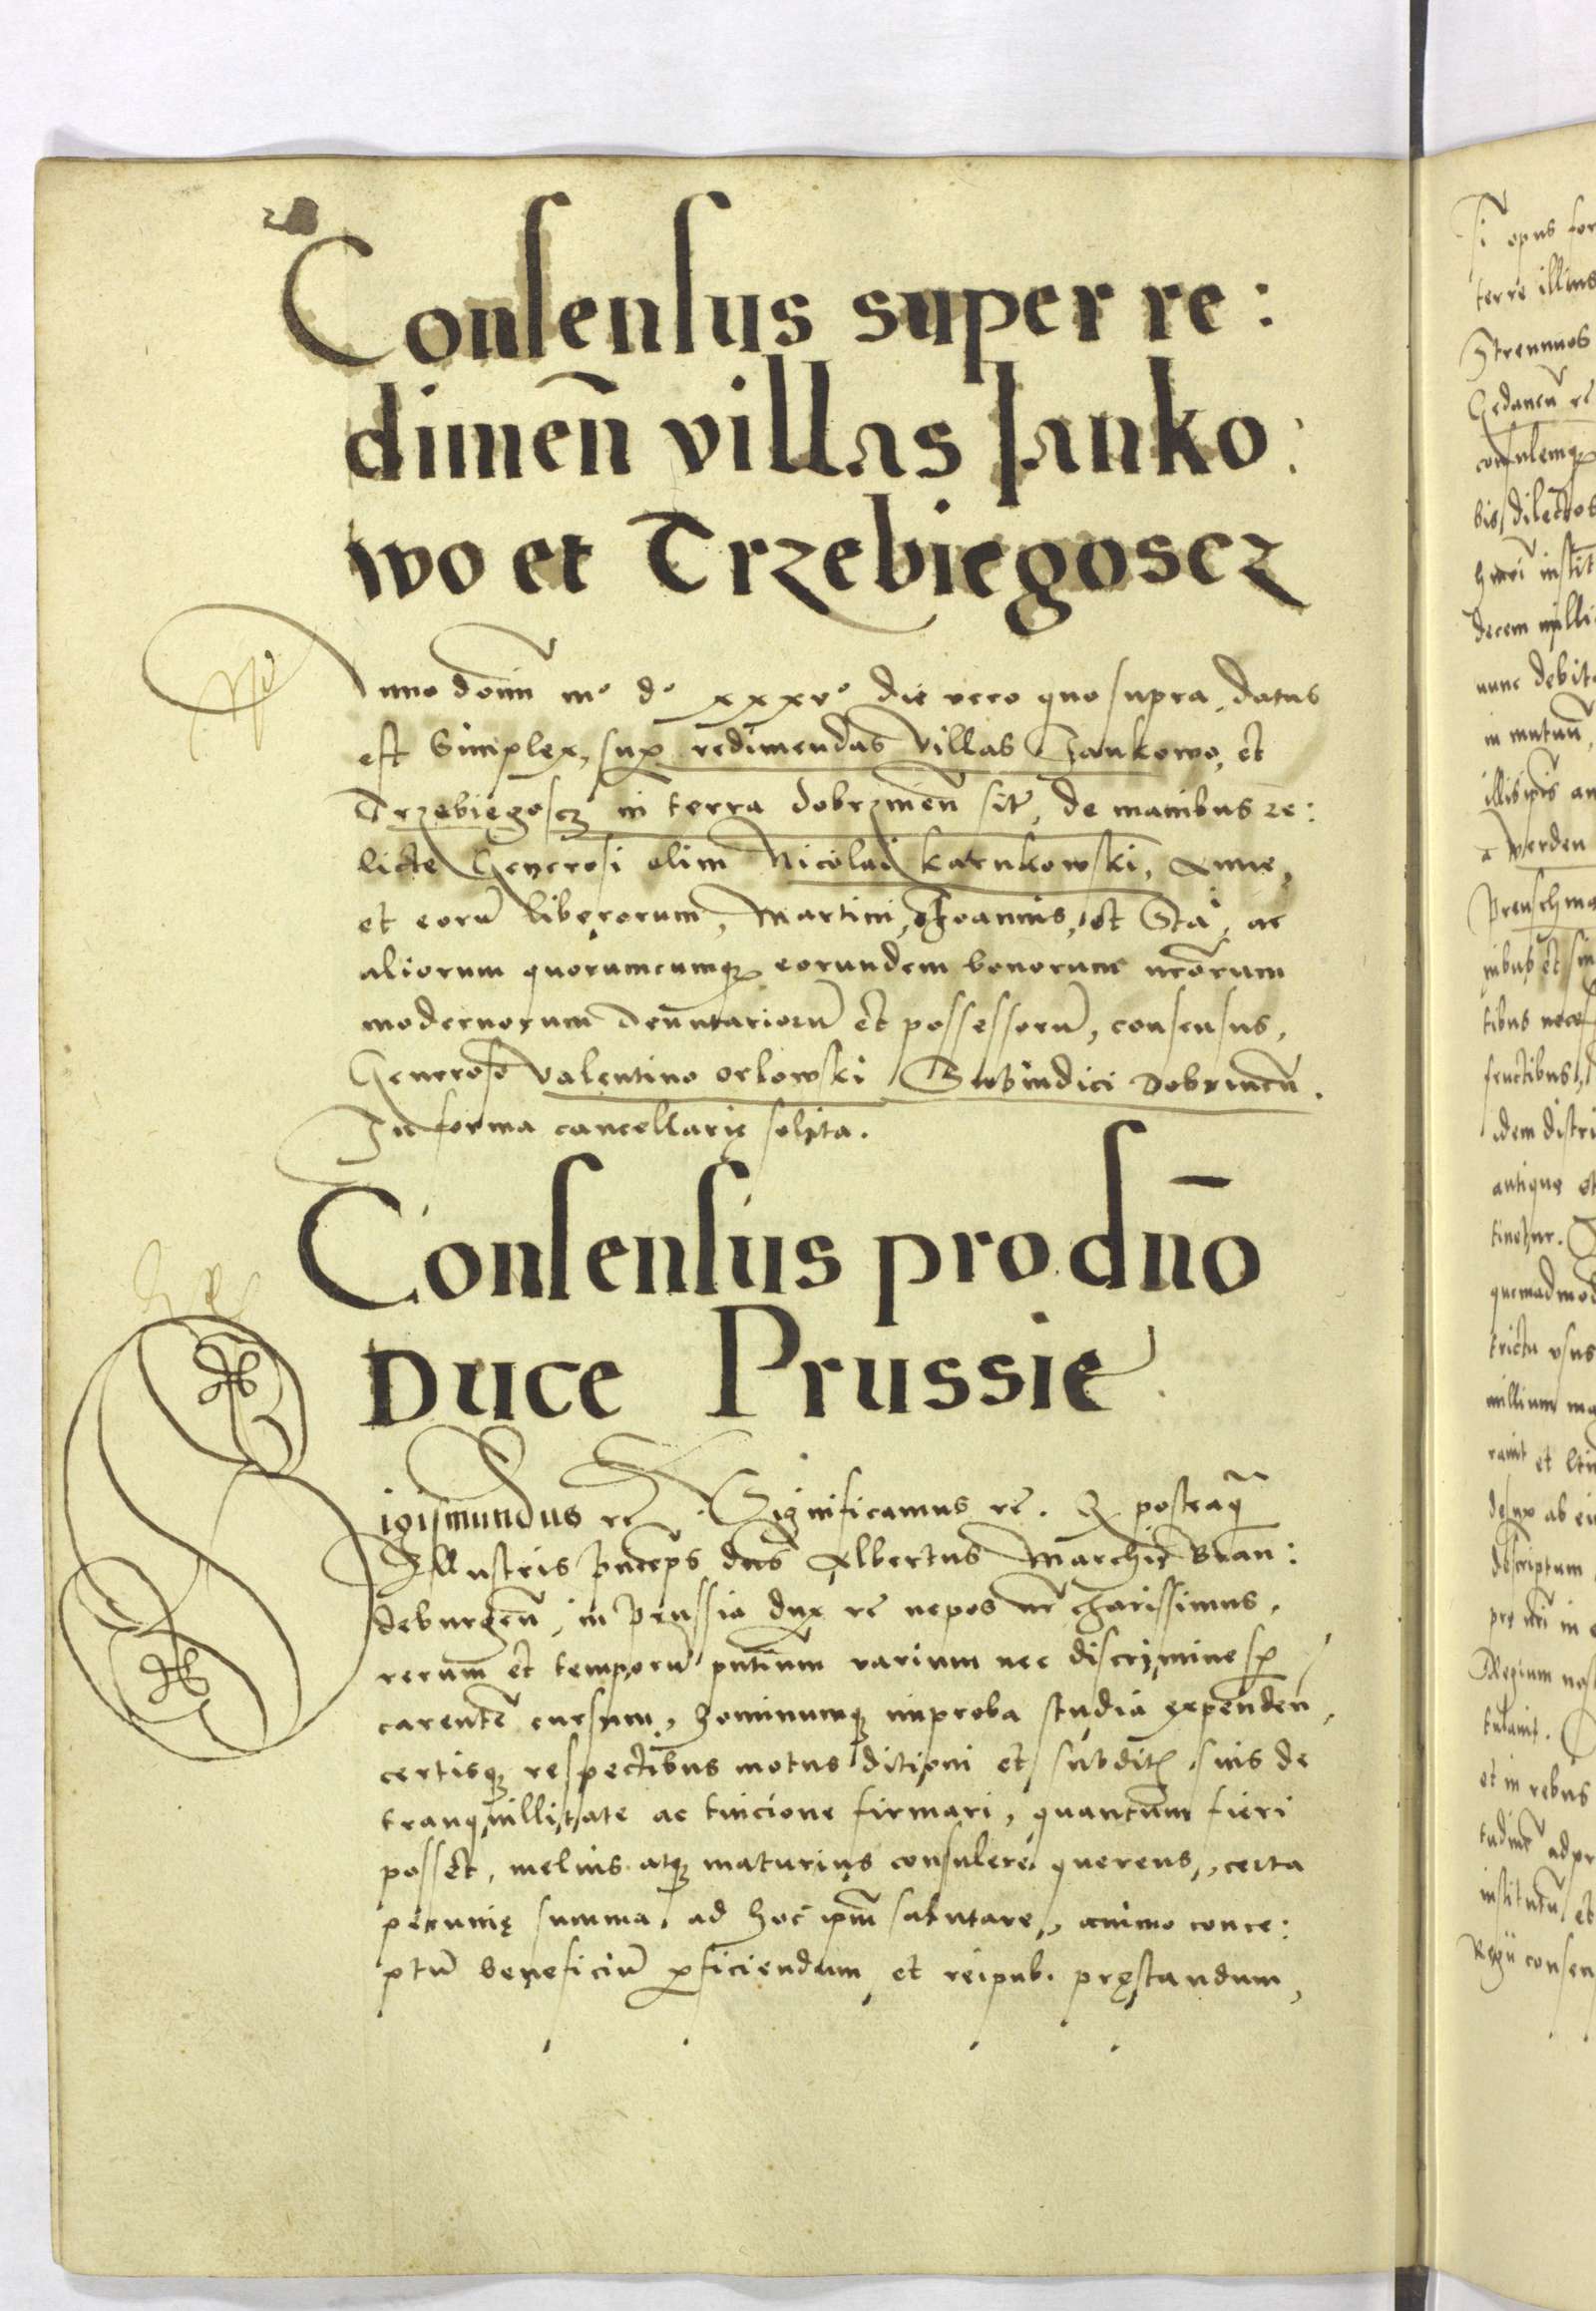 Consensus super re:
dimen̄ villas Janko:
wo et Trzebiegoscz
Anno domin̄ mº dº xxxvº die vero quo supra, datus
est Simplex, sup redimendas Villas Jankowo, et
Trzebiegoscz in terra dobrzinen̄ sit̄, de manibus re:
licte Generosi olim Nicolai Karnkowski, Anne,
et eorū liberorum, Martini, Joannis, et Sta: ac
aliorum quorumcumqꝫ eorundem bonorum ur̄orum
modernorum Aduntariorū et possessorū, consensus,
Generoso Valentino orlowski Subiudici Dobrincn̄.
In forma cancellarię solita.
Consensus pro dn̄o
Duce Prussie
Sigismundus rc̄. Significamus rc̄. Q posteaq̄
Illustris Princeps dn̄s Albertus Marchio Bran:
deburgen̄, in Prussia dux rc̄ nepos nr̄ charissimus,
rerum et temporū pn̄tium varium nec discrimine sp̄
carentē cursum, hominumqꝫ improba studia expenden̄,
certisqꝫ respectibus motus ditioni et subditꝭ suis de
tranquillitate ac tuicione firmari, quantum fieri
posset, melius atqꝫ maturius consulere querens, certa
pecunię summa, ad hoc ipm̄ salutare, animo conce:
ptū beneficiū ꝑficiendum et reipub. pręstandum,
Si opus for
terre illius
Strennuos
Gedanen̄ rc̄
consulemqꝫ
bis, dilectos
decem milli
nunc debit
in mutuū,
a Werden
fructibus,
idem distri
antique et
tinetur.
quemadmod
trictu usus
millium ma
descriptum
Regium nos
tulauit.
et in rebus
institutū et
Regii consen